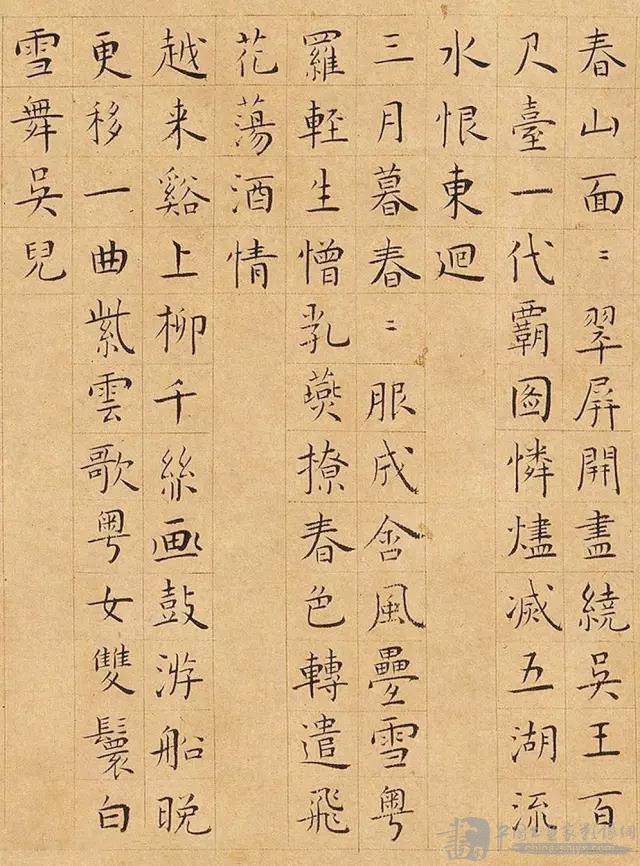 春山面〻翠屏開盡繞吳王百
尺臺一代覇圖憐燼滅五湖流
水恨東迴
三月暮春〻服成含風疊雪粵
羅輕生憎乳燕撩春色轉遣飛
花蕩酒情
越来谿上柳千絲畫鼓游船晚
更移一曲紫雲歌粵女雙鬟白
雪舞吳兒